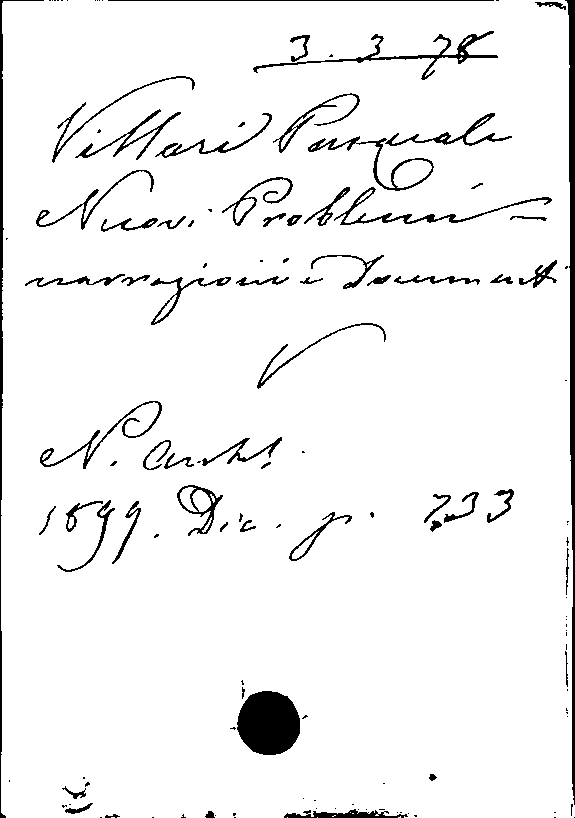 3. 3 78
Villari Pasquale
Nuovi Problemi =
narrazioni e Documenti
V
N. Antol.
1899. Dic. p. 733